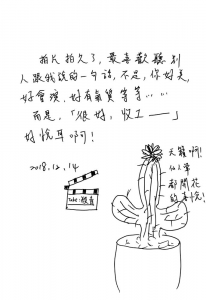 拍片拍久了，最喜歡聽別
人跟我說的一句話，不是，你好美，
好會演、好有氣質等等……
而是，「很好，收工——」
好悅耳啊！
2018.12.14
天籟啊！
仙人掌
都開花
的喜悅！
take:殺青